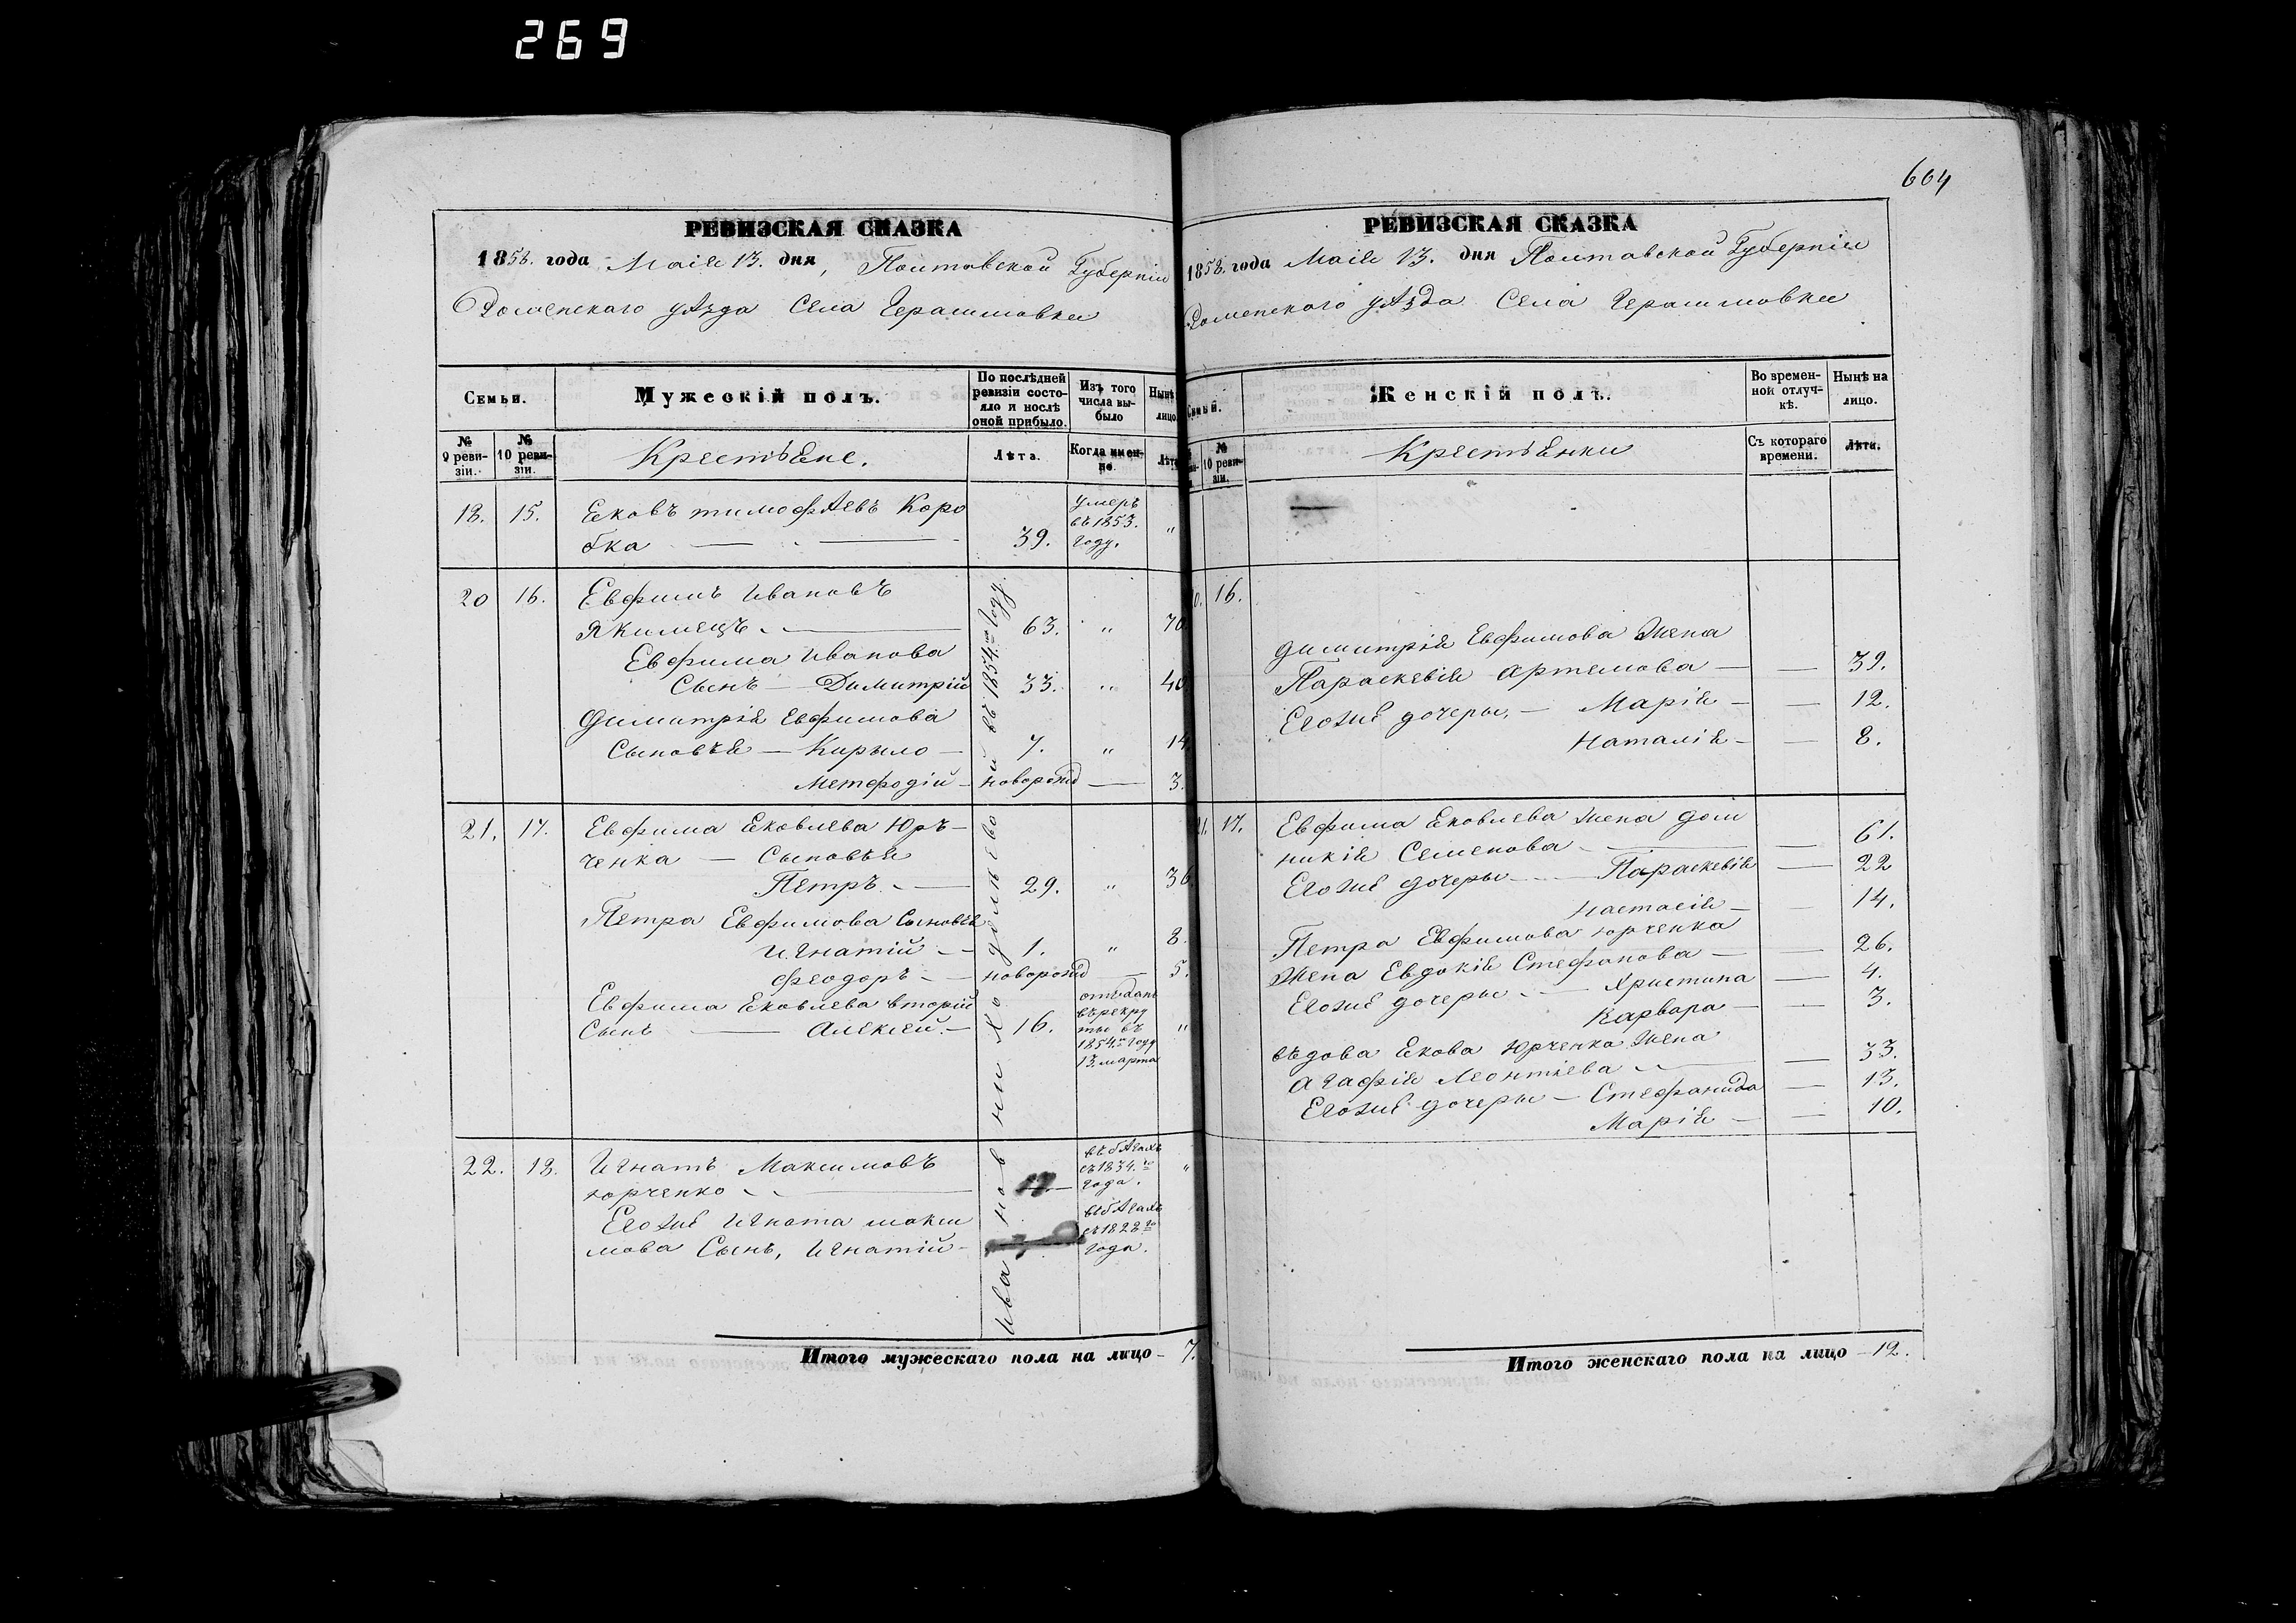 269
664
РЕВИЗСКАЯ СКАЗКА
1858. года Маія 13. дня, Полтавской Губерніи
Роменскаго уѣзда Села Герасимовки
Семьи.
Мужескій полъ.
По послѣдней ревизіи состояло и послѣ оной прибыло.
Изъ того числа выбыло
Нынѣ лицо
№ 9 ревизіи.
№ 10 ревизіи.
Крестьяне.
Лѣта.
Когда именно.
Лѣта
18. 15. Яковъ тимофѣевъ Коро
бка — 39. умеръ въ 1853. году. "
20 16. Евфимъ Ивановъ
Якимецъ — 63. " 70
Евфима Иванова
Сынъ — Димитрій 33. " 40
Димитрія Евфимова
Сыновья — Кирыло — 7. " 14
Метфодій — новорожд — 3.
21. 17. Евфима Яковлева Юръ-
ченка — Сыновья
Петръ. — 29. " 36.
Петра Евфимова Сыновья
Игнатій — 1. " 8.
Феодоръ — новорожд — 5.
Евфима Яковлева вторій
Сынъ — Алексей. — 16. отъданъ въ рекруты въ 1854.м году 13. марта "
22. 18. Игнатъ Максимовъ
юрченко — 17. — въ бѣгахъ съ 1834.го года. "
Егожъ Игната макси
мова Сынъ, Игнатій — въ бѣгахъ съ 1828го года.
Итого мужескаго пола на лицо — 7.
РЕВИЗСКАЯ СКАЗКА
1858. года Маія 13. дня Полтавской Губерніи
Роменского уѣзда Села Герасимовки
Семьи.
Женскій полъ.
Во временной отлучкѣ.
Нынѣ на лицо.
№ 10 ревизіи.
Крестьянки
Съ котораго времени.
Лѣта.
16.
Димитрія Евфимова Жена
Параскевія Артемова — — 39.
Егожъ дочеры, — Марія — — 12.
Наталія — — 8.
21. 17. Евфима Яковлева жена дом
никія Семенова — — 61.
Егожъ дочеры — Параскевія — 22
Настасія — — 14.
Петра Евфимова юрченка
Жена Евдокія Стефанова — — 26.
Егожъ дочеры — Христина — 4.
Варвара — — 3.
вѣдова Якова Юрченка жена
Агафія Леонтіева — — 33.
Егожъ дочеры — Стефанида — 13.
Марія — — 10.
Итого женскаго пола на лицо — 12.